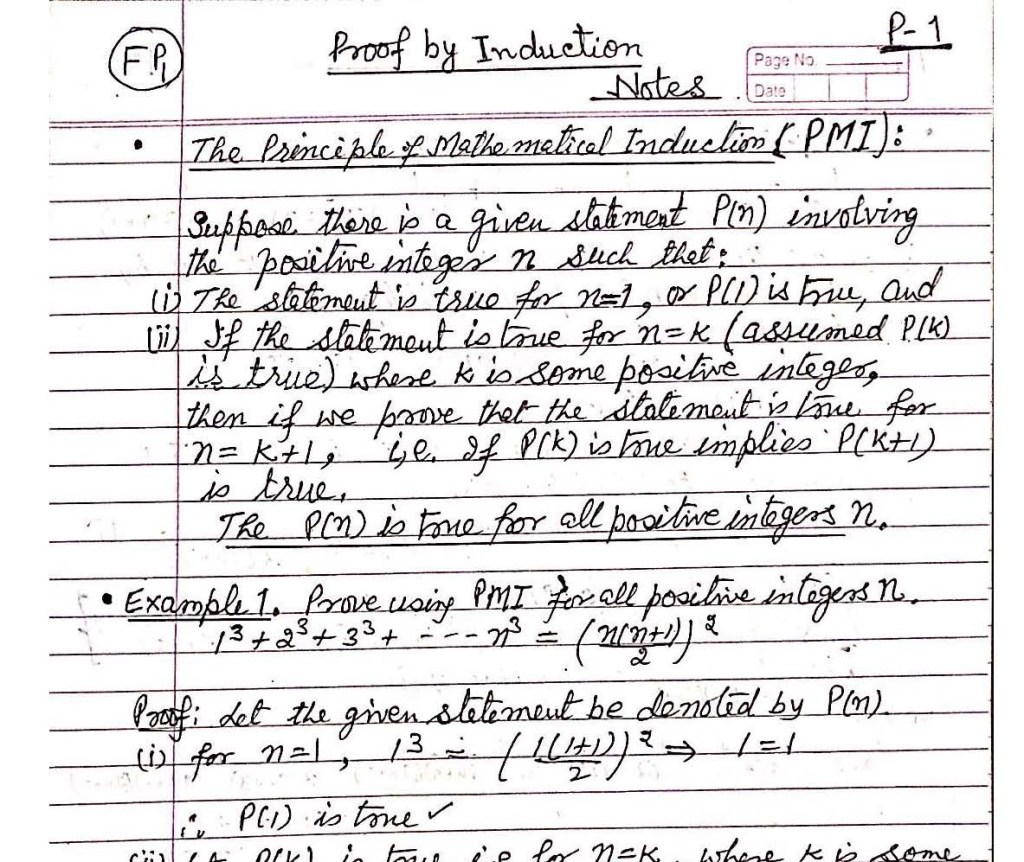 FP1
Proof by Induction
P-1
Notes
Page No.
Date
• The Principle of Mathematical Induction (PMI):
Suppose there is a given statement P(n) involving
the positive integer n such that:
(i) The statement is true for n=1, or P(1) is true, and
(ii) If the statement is true for n=k (assumed P(k)
is true) where k is some positive integer,
then if we prove that the statement is true for
n= k+1, i.e. If P(k) is true implies P(k+1)
is true,
The P(n) is true for all positive integers n.
• Example 1. Prove using PMI for all positive integers n.
1³ + 2³ + 3³ + - - - n³ = (n(n+1)/2)²
Proof: Let the given statement be denoted by P(n).
(i) for n=1, 1³ = (1(1+1)/2)² ⇒ 1=1
∴ P(1) is true ✓
(ii) Let P(k) is true i.e for n=k, where k is some